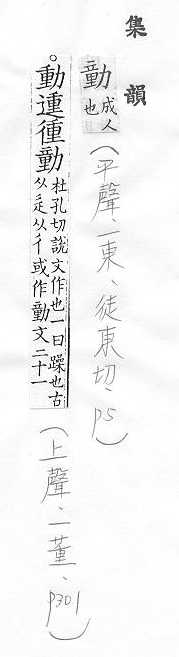 集韻
勭成人
也
(平聲、一東、徒東切、p5)
。動𨔝㣫勭杜孔切說文作也一曰躁也古
从辵从彳或作勭文二十一
(上聲、一董、p301)